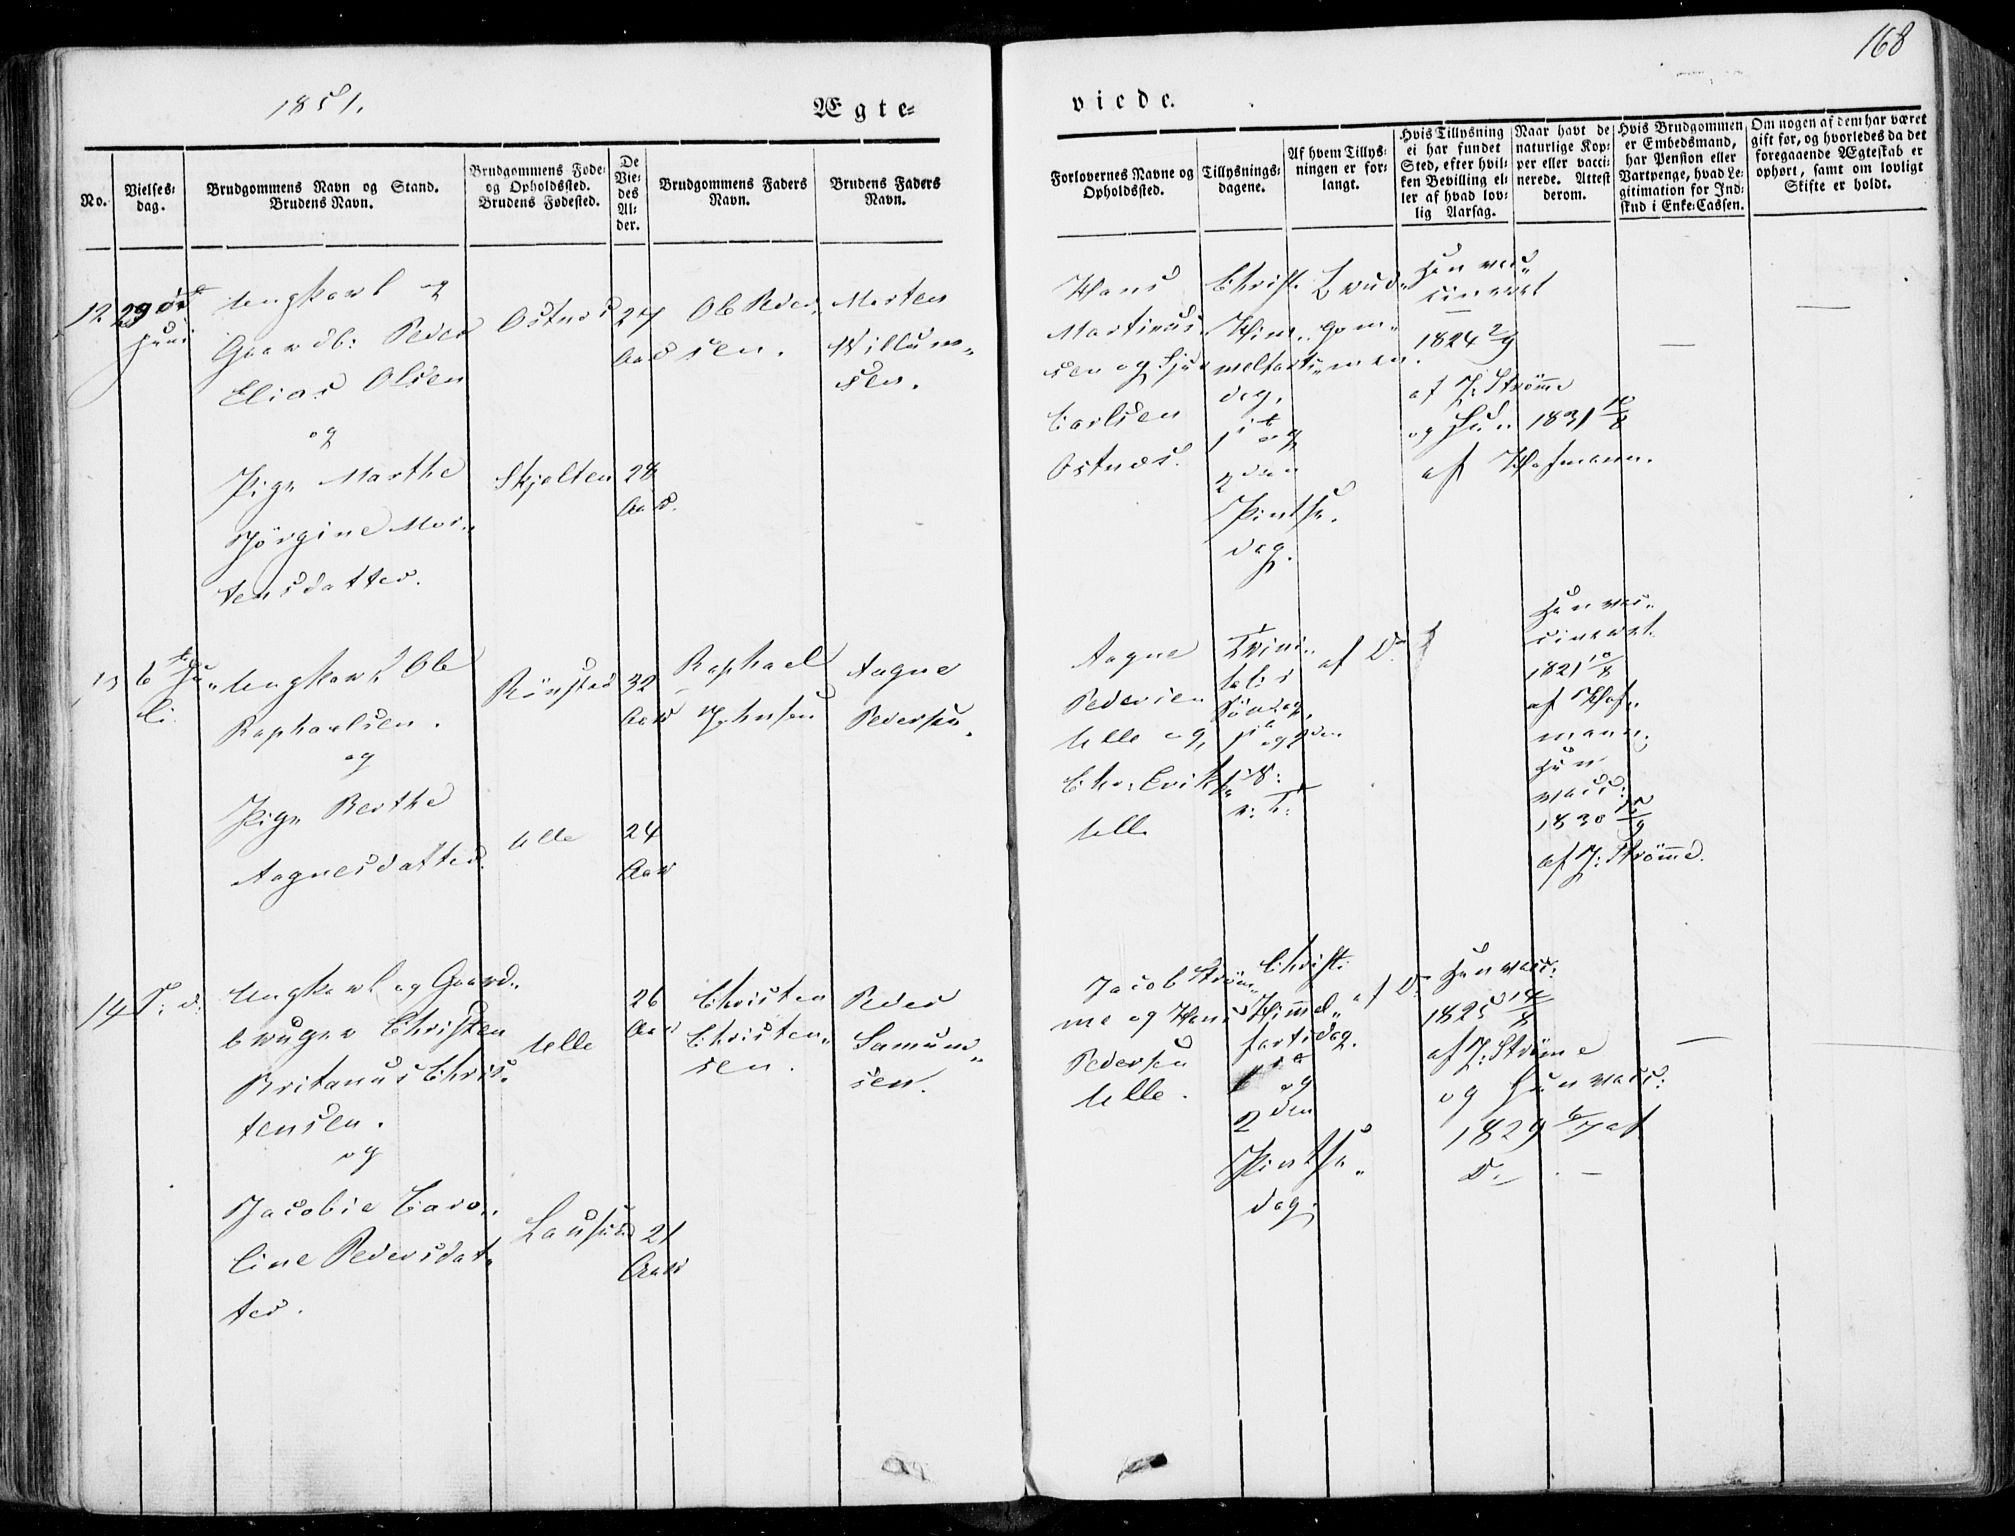 168
1851.
Ægte=
viede.
No.
Vielses=
dag.
Brudgommens Navn og Stand.
Brudens Navn.
Brudgommens Føde=
og Opholdssted.
Brudens Fødested.
De
Vie=
des
Al=
der.
Brudgommens Faders
Navn.
Brudens Faders
Navn.
Forlovernes Navne og
Opholdssted.
Tillysnings=
dagene.
Af hvem Tillys=
ningen er for=
langt.
Hvis Tillysning
ei har fundet
Sted, efter hvil=
ken Bevilling el=
ler af hvad lov=
lig Aarsag.
Naar havt de
naturlige Kop=
per eller vacci=
nerede. Attest
derom.
Hvis Brudgommen
er Embedsmand,
har Pension eller
Vartpenge, hvad Le=
gitimation for Ind=
skud i Enke=Cassen.
Om nogen af dem har været
gift før, og hvorledes da det
foregaaende Ægteskab er
ophørt, samt om lovligt
Skifte er holdt.
12
29de
Juni
Ungkarl og
Gaardb: Peder
Elias Olsen
og
Pige Marthe
Jörgine Mor„
tensdatter.
Ostnes
Skjelten
27
Aar
28
Aar.
Ole Peder„
sen.
Morten
Willum„
sen.
Hans
Martinus„
sen og
Carlsen
Ostnes.
Christi
Him„
melfarts„
dag,
1ste og
2den
Pintse„
dag.
Brud„
gom„
men.
Han vac„
cineret
1824 2/9
af J: Strömme
og Hun 1831 10/8
af Hofmann.
13
6te Ju„
li.
Ungkarl Ole
Raphaelsen.
og
Pige Berthe
Aagnesdatter.
Rönstad
Ulle
32
Aar
24
Aar
Raphael
Johnsen
Aagne
Pedersen.
Aagne
Pedersen
Ulle og
Chr: Erik
Ulle
Trini„
tatis
Söndag,
1ste og 2den
af Do
Han vac„
cineret
1821 10/8
af Hof„
mann;
Hun
vacc:
1830
af J: Strömme.
14
S: D:
Ungkarl og Gaard„
bruger Christen
Britanus Chris„
tensen.
og
Jacobie Caro„
line Pedersdat„
ter.
Ulle
Lausund
26
Aar
21
Aar
Christen
Christen„
sen.
Peder
Samuns„
sen.
Jacob Ström„
me og Hans
Pedersen
Ulle.
Christi
Himmel„
fartsdag.
1ste
og
2den
Pintse„
dag.
af Do
Han vacc:
1825 14/8
af J: Strömme
og Hun vacc:
1829 6/7 af
D: